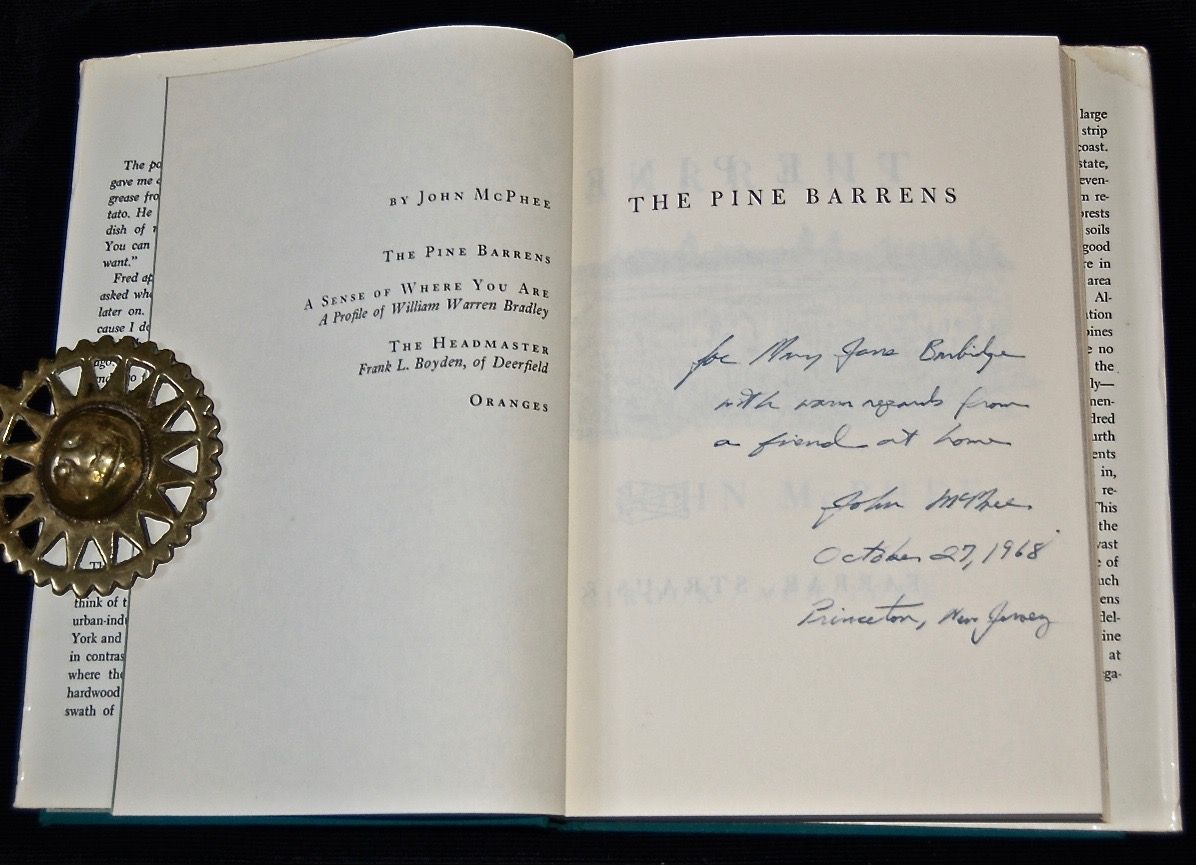 The po
gave me
grease fro
tato. He
dish of
You can
want."
Fred ap
asked wh
later on.
cause I d
think of t
urban-ind
York and
in contras
where the
hardwood
swath of
BY JOHN MCPHEE
THE PINE BARRENS
A SENSE OF WHERE YOU ARE
A Profile of William Warren Bradley
THE HEADMASTER
Frank L. Boyden, of Deerfield
ORANGES
THE PINE BARRENS
for Mary Jane Burbidge
with warm regards from
a friend at home
John McPhee
October 27, 1968
Princeton, New Jersey
large
strip
coast.
state,
even-
n re-
rests
soils
good
re in
area
Al-
tion
pines
e no
the
ly—
men-
dred
urth
ents
in,
re-
This
the
vast
e of
uch
ens
del-
ine
at
ega-